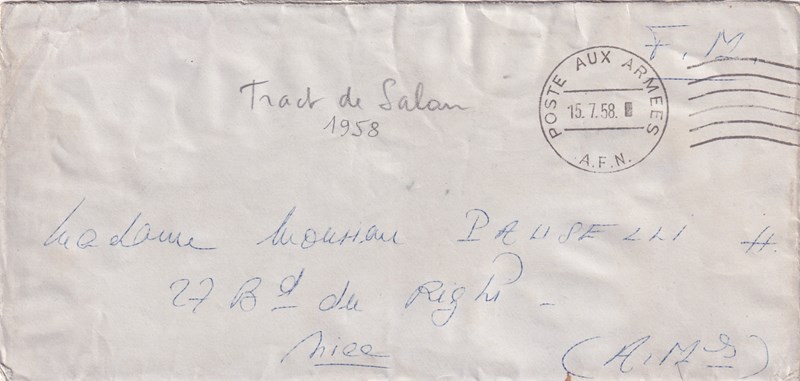 F.M.
POSTE AUX ARMEES
15.7.58.
A.F.N.
Tract de Salan
1958
Madame Monsieur PAUSELLI H.
27 Bd du Righi -
Nice
(A.Mes)